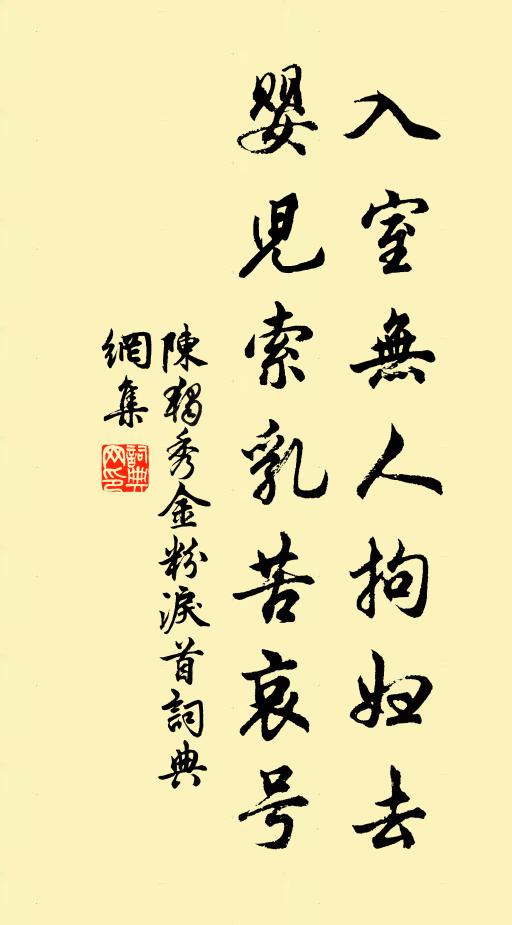 入室無人拘妇去
嬰児索乳苦哀号
陳獨秀金粉淚首詞典
網集
詞典
网印